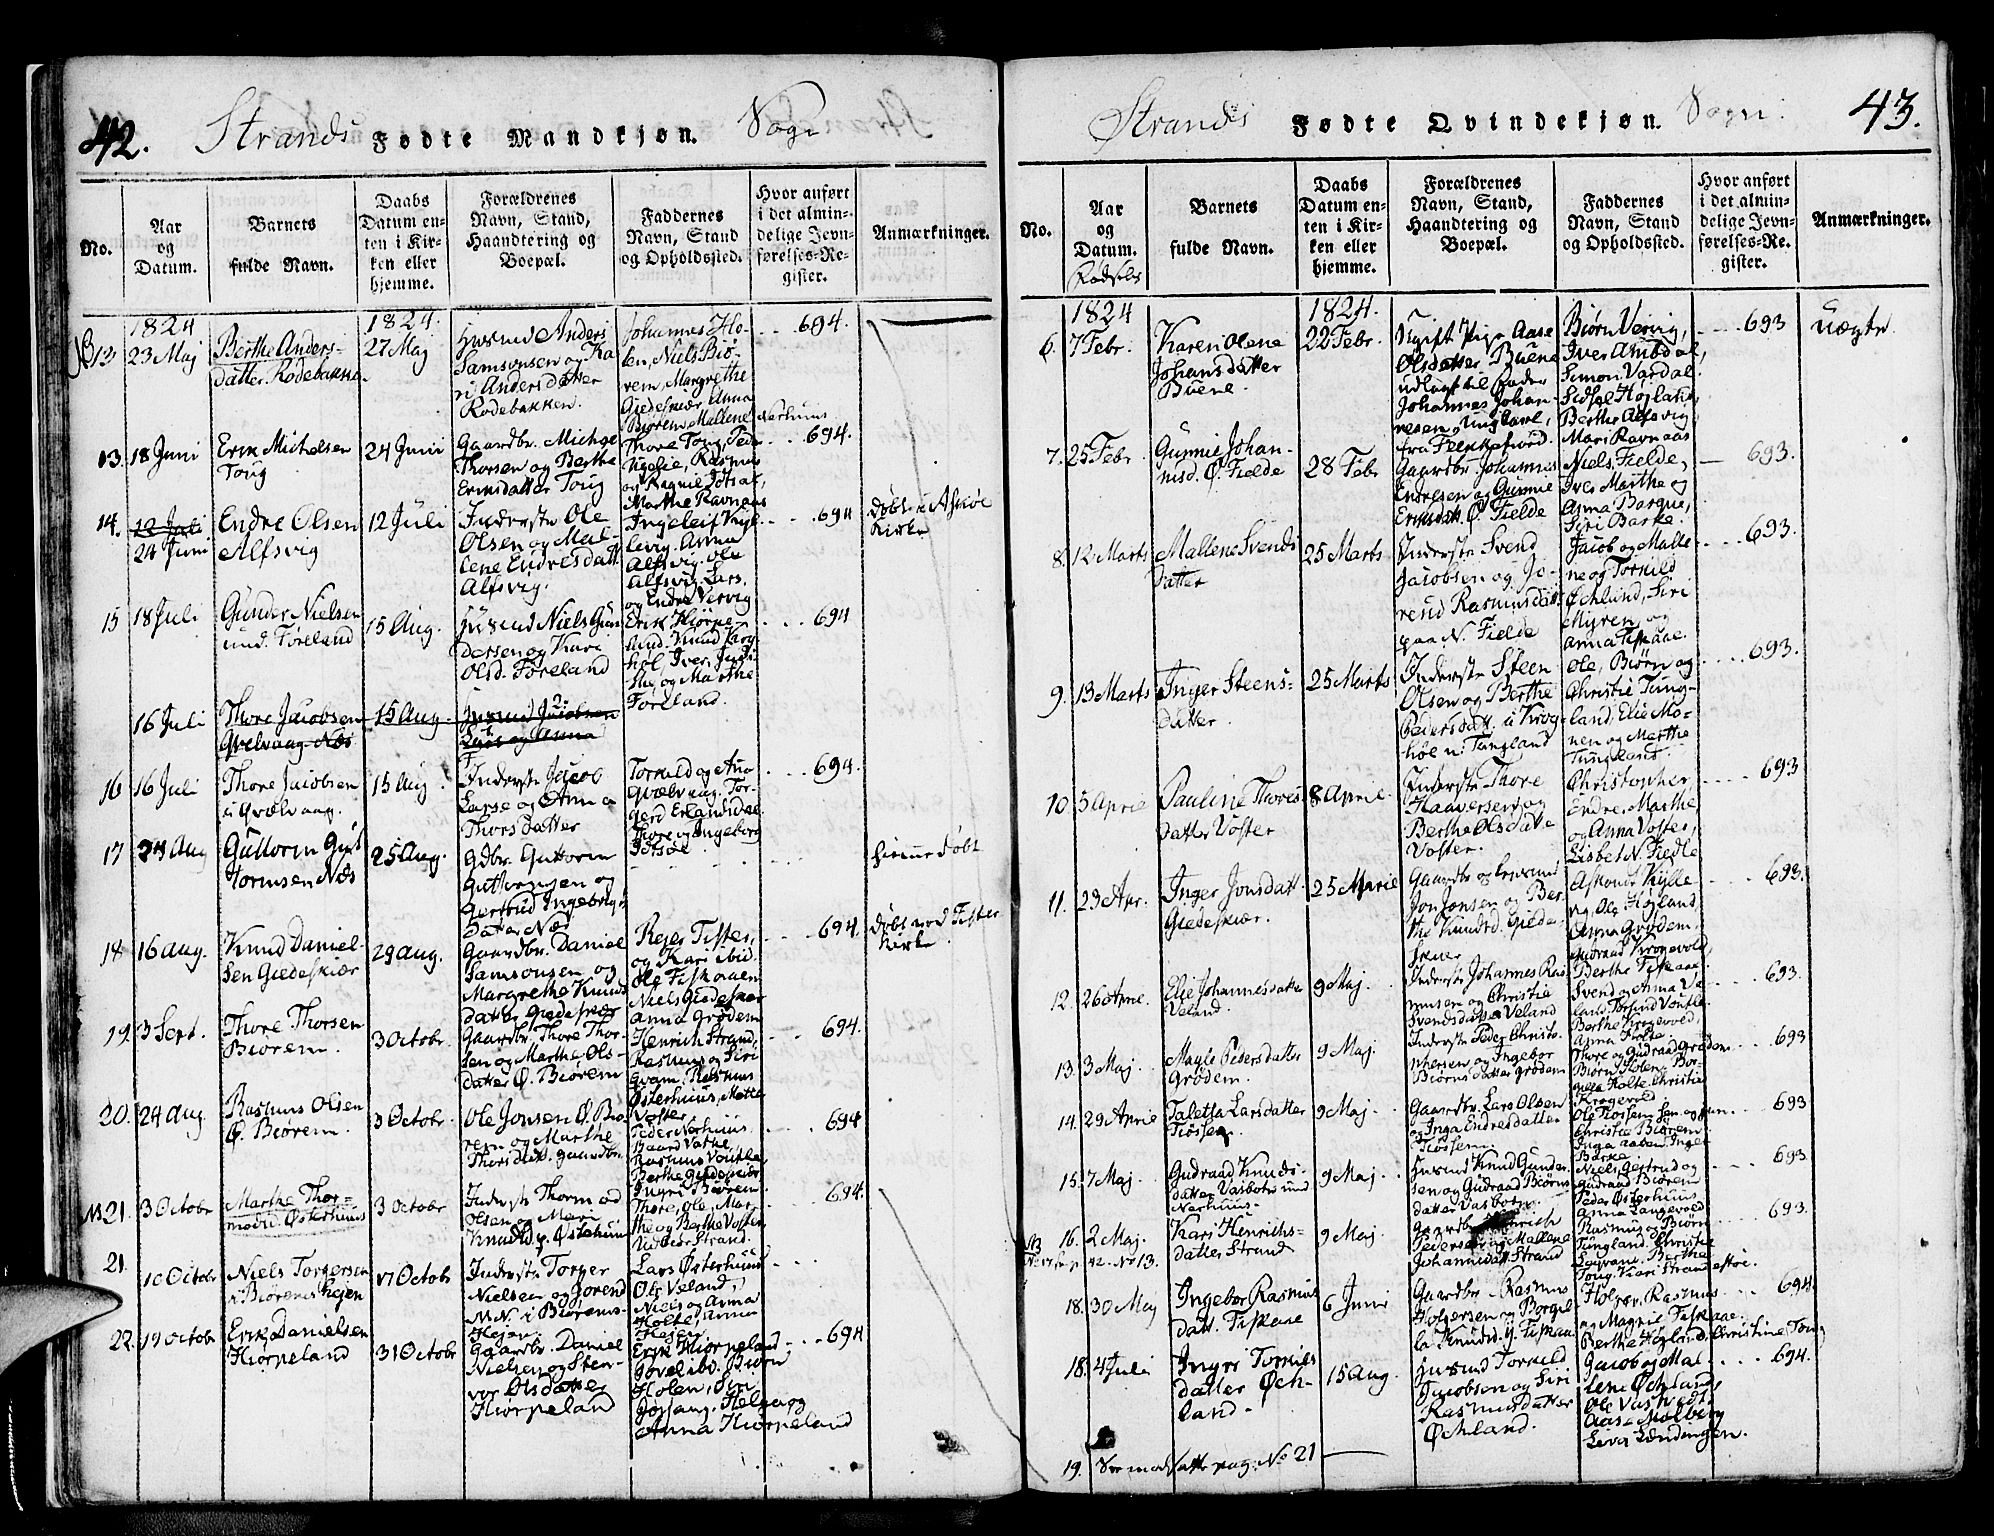 42. Strands Fødte Mandkjøn. Sogn
No.
Aar
og
Datum.
Barnets
fulde Navn.
Daabs
Datum en-
ten i Kir-
ken eller
hjemme.
Forældrenes
Navn, Stand,
Haandtering og
Boepæl.
Faddernes
Navn, Stand
og Opholdssted.
Hvor anført
i det almin-
delige Jevn-
førelses-Re-
gister.
Anmærkninger.
1824
23 Maj
Berthe Anders-
datter. Rødebakke.
1824.
27 Maj
Huusmd Anders
Samsonsen og Ka
ri Andersdatter
Rødebakken.
Johannes Ho-
len, Niels Biø-
rem, Margrethe
Giedeskiær, Anna
Biørem, Mallene
Nerhuus
694.
13.
18 Juni
Erik Michelsen
Toug
24 Juni
Gaardbr. Michge
Thorsen og Berthe
Eriksdatter Toug
Thore Toug, Peder
Rasmus
og Jøtsøe,
Marthe Ravnaas
694.
14.
12 Juli
24 Juni
Endre Olsen
Alfsvig
12 Juli
Inderste Ole
Olsen og Mal-
lene Endresdatt.
Alfsvig.
Ingeleif
levig. Anna
Alfsvig. Ole
Alfsvig. Lars.
og Endre Vervig
694
Døbt i Askøe
Kirke
15
18 Juli
Gunder Nielsen
und. Føreland
15 Aug.
Husmd Niels Gun
dersen og Kari
Olsd. Føreland
Erik Hiørpe-
land. Knud Krog
høl, Iver
og Marthe
Føreland.
694
16 Juli
Thore Jacobsen
Qvelvaag Næs
15 Aug.
Husmd Jacobsen
Lars og Anna
16
16 Juli
Thore Jacobsen
i Qvælvaag.
15 Aug.
Inderste Jacob
Larse og Anna
Thorsdatter
Torkild og Ana
Qvælvaag. Tor-
gerd Erlandsdal
Thore og Ingeborg
Jøtsøe.
694.
17
24 Aug
Guttorm Gut
tormsen Næs
25 Aug.
Gdbr. Guttorm
Guttormsen og
Gertrud Ingebrig-
datter Næs
hiemmedøbt
18
16 Aug.
Knud Daniel-
sen Giedeskiær
29 Aug.
Gaardbr. Daniel
Samsonsen og
Margrethe Knuds
datter Giedeskiær
Rejer Fister,
og Kari ibid.
Ole Fiskaaen
Niels Giedeskær
Anna Grødem
694.
Døbt ved Fister
Kirke
19.
3 Sept.
Thore Thorsen
Biørem.
3 Octobr.
Gaardbr. Thore Thor-
sen og Marthe Ols-
datter Ø. Biørem
Henrich Strand,
Rasmus og Siri
Qvam. Rasmus
Østerhuus, Mette
Voster
694.
20.
24 Aug
Rasmus Olsen
Ø. Biørem.
3 Octobr.
Ole Jonsen Ø. Biø-
rem og Marthe
Thorsdatt. gaardbr.
Peder Nerhuus.
Baard Vathe,
Rasmus Voutle
Berthe Giedeskiær
Ingri Biørem
694
21.
3 Octobr
Marthe Thor-
modsd. Østerhuus
3 Octobr
Inderste Thormod
Olsen og Mari
Knudsd. p. Østerhuus
Thore, Ole, Mar-
the og Berthe Voster
Strand.
694.
21.
10 Octobr
Niels Torgersen
i Biørems hejen
17 Octobr
Inderste Torger
Nielsen og Jorend
N.N. i Biørems-
Hejen.
Lars Østerhuus
Ole Veland,
Niels og Anna
Holte, Anna
Hejen.
22.
19 Octobr
Erik Danielsen
Hiørpeland
31 Octobr
Gaardbr. Daniel
Nielsen og Sten-
vor Olsdatter
Hiørpeland
Erik Hiørpeland
Biørn
Holen, Siri
Jøssang, Helga og
Anna Hiørpeland
694
Strands Fødte Qvindekjøn. Sogn. 43.
No.
Aar
og
Datum.
Fødsels
Barnets
fulde Navn.
Daabs
Datum en-
ten i Kir-
ken eller
hjemme.
Forældrenes
Navn, Stand,
Haandtering og
Boepæl.
Faddernes
Navn, Stand
og Opholdssted.
Hvor anført
i det almin-
delige Jevn-
førelses-Re-
gister.
Anmærkninger.
1824
6. 7 Febr.
Karen Olene
Johansdatter
Buene.
1824.
22 Febr.
Ugift Pige Aase
Olsdatter Buene
udlagt til Fader
Johannes Johan-
nesen, Ungkarl,
fra Flekkefiord.
Biørn Vervig,
Iver Ambdal,
Simon Vardal.
Sidsel Høiland,
Berthe Alfsvig
Mari Ravnaas
693
Uægte.
7. 25 Febr.
Gunnie Johan-
nisd. Ø. Fielde
28 Febr
Gaardbr Johannes
Endresen og Gunnie
Eriksdatt. Ø. Fielde
Niels Fielde,
Ives Marthe og
Anna Barque,
Siri Barke.
693.
8. 12 Marts
Mallene Svends
datter
25 Marts
Inderste Svend
Jacobsen og Jo-
rend Rasmusdatt.
paa N. Fielde
Jacob og Malle-
ne og Torkild
Øchland, Siri
Myren, og
Anna Fiskaae.
693.
9. 13 Marts
Inger Steens-
datter.
25 Marts
Inderste Steen
Olsen og Berthe
Pedersdatt. i Krog-
høl u. Tungland
Ole, Biørn og
Christie Tung-
land, Elie Mo-
nen og Marthe
Tungland.
693.
10. 5 Aprie
Pauline Thores
datter Voster
8 Aprie.
Inderste Thore
Haaversen og
Berthe Olsdatte
Voster.
Christopher
Endre, Marthe,
og Anna Voster,
Lisbet N. Fiedle
693
11. 23 Apr.
Inger Jonsdatt.
Giedeskiær.
25 Aprie
Gaardbr og
Jon Jonsen og Ber
the Knudsd. Giede-
skiær
Ole Høiland,
Anna Grødem,
Gudraad Krogevold,
Berthe Fiskaae.
693.
12. 26 Aprie.
Elie Johannesdatter
Veland.
9 Maj.
Inderste Johannes Ras
musen og Christie
Svendsdatter Veland
Svend og Anna Ve-
land. Torlund Voutle
Berthe Krogevold,
Anna Holte
693.
13. 3 Maj.
Magle Pedersdatter
Grødem.
9 Maj.
Inderste Peder Christo-
phersen og Ingebor
Biørnsdatter Grødem
Thore og Gudraad Grødem
Biørn Holen. Bor-
gilla Holte, Christie
Krogevold
693
14. 29 Aprie
Taletta Larsdatter
Tiøssem.
9 Maj.
Gaardbr. Lars Olsen
og Inga Endresdatter
Tiøssem.
Ole Tiøssem
Christie Biørem
Inga Inger
Barke
693
15. 7 Maj.
Gudraad Knuds-
datter Vasbotn und
Nerhuus.
9 Maj.
Husmd Knud Gunder-
sen og Gudraad Biørns
datter Vasbotn.
Niels, Gertrud og
Gudraad Biørem
Peder Østerhuus
Anna Langevold
693
16. 2 Maj.
Kari Henrichs-
datter Strand
9 Maj.
Gaardbr. Henrich
Pedersen og Mallene
Johannisdatt. Strand
Rasmus og Biørn
Tungland. Christie
Berthe
Toug. Kari Strand
693.
18. 30 Maj
Ingebor Rasmus
datt. Fiskaae
6 Juni
Gaardbr. Rasmus
Holgersen og Borgil
la Knudsd. Y. Fiskaa
Holger, Rasmus
og Magnie Fiskaae.
Berthe Høgland. Christine Toug
694
18. 4 Juli
Ingri Torkils
datter Øch-
land.
15 Aug.
Husmd Torkild
Jacobsen og Siri
Rasmusdatter
Øchland.
Jacob og Mal-
lene Øchland,
Ole Vastvedt
Aase Molberg
Liva Lændingen.
694.
19. See modsatte pag: No 21